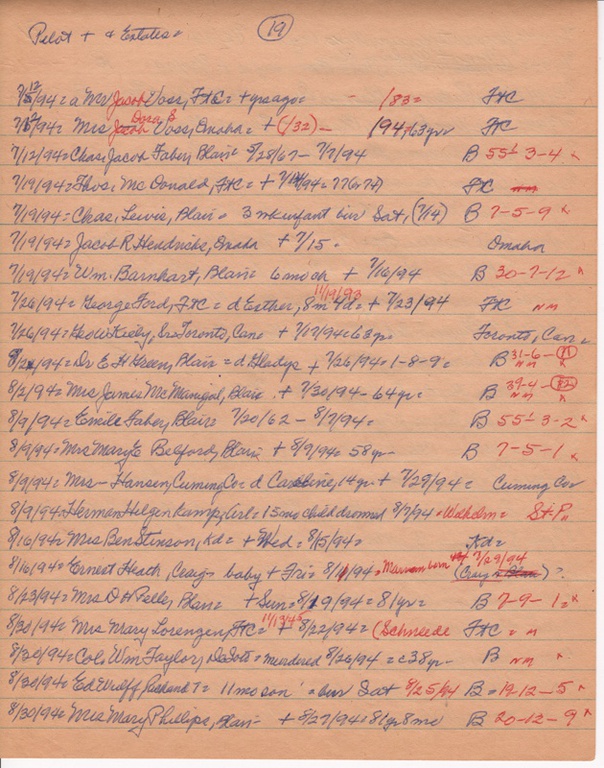 Pilot + & Estates = (19)
7/12/94 = a Mr Jacob Voss, FtC = + yrs ago = - /83 = FtC
7/12/94 = Mrs Jacob Dora E Voss, Omaha = + (/32) - /94, 63 yr FC
7/12/94 = Chas Jacob Faber, Blair = 5/28/67 - 7/7/94 B 55½-3-4 x
7/19/94 = Thos. McDonald, FtC = + 7/ /94 = 77 or 78 FC NM
7/19/94 = Chas, Lewis, Blair = 3 mk infant bur Sat, (7/14) B 7-5-9 x
7/19/94 = Jacob R Hendricks, Omaha + 7/15 = Omaha
7/19/94 = Wm. Barnhart, Blair = 6 mo ch + 7/16/94 B 30-7-12 x
7/26/94 = George Ford, FtC = d Esther, 8m 4d = 11/19/93 + 7/23/94 FtC NM
7/26/94 = Geo W Keely, Sr Toronto, Can = + 7/17/94 = 63 yr = Toronto, Can =
8/2/94 = Dr E H Green, Blair = d Gladys + 7/26/94 = 1-8-9 = B 31-6-(11) NM x
8/2/94 = Mrs James McManigal, Blair + 7/30/94 - 64 yr = B 39-4-(12) NM x
8/9/94 = Emile Faber, Blair = 7/20/62 - 8/7/94 = B 55½-3-2 x
8/9/94 = Mrs Mary E Belford, Blair = + 8/9/94 = 58 yr - B 7-5-1 x
8/9/94 = Mrs - Hansen, Cuming Co = d Caroline, 14 yr + 7/29/94 = Cuming Co
8/9/94 = Herman Hilgenkamp, Arl = 15 mo child drowned 8/7/94 = = St. P
8/16/94 = Mrs Ben Stinson, Kd = + Wed = 8/15/94 = Kd =
8/16/94 = Ernest Heath, Craig = baby + Fri = 8/ /94 = born 3/29/94 (Craig Blair) ?
8/23/94 = Mrs D H Peller, Blair = + Sun = 8/19/94 = 81 yr = B 7-9-1 = x
8/30/94 = Mrs Mary Lorenzen, FtC = + 8/22/94 = (Schneede FtC = M
8/30/94 = Col, Wm Taylor, DeSoto = murdered 8/26/94 = c38 yr - B NM x
8/30/94 = Ed Wulff, ? = 11 mo son = bur Sat 8/25/94 B = 19-12-5 x
8/30/94 = Mrs Mary Phillips, Blair - + 8/27/94 = 81 yr 8 mo B 20-12-9 x